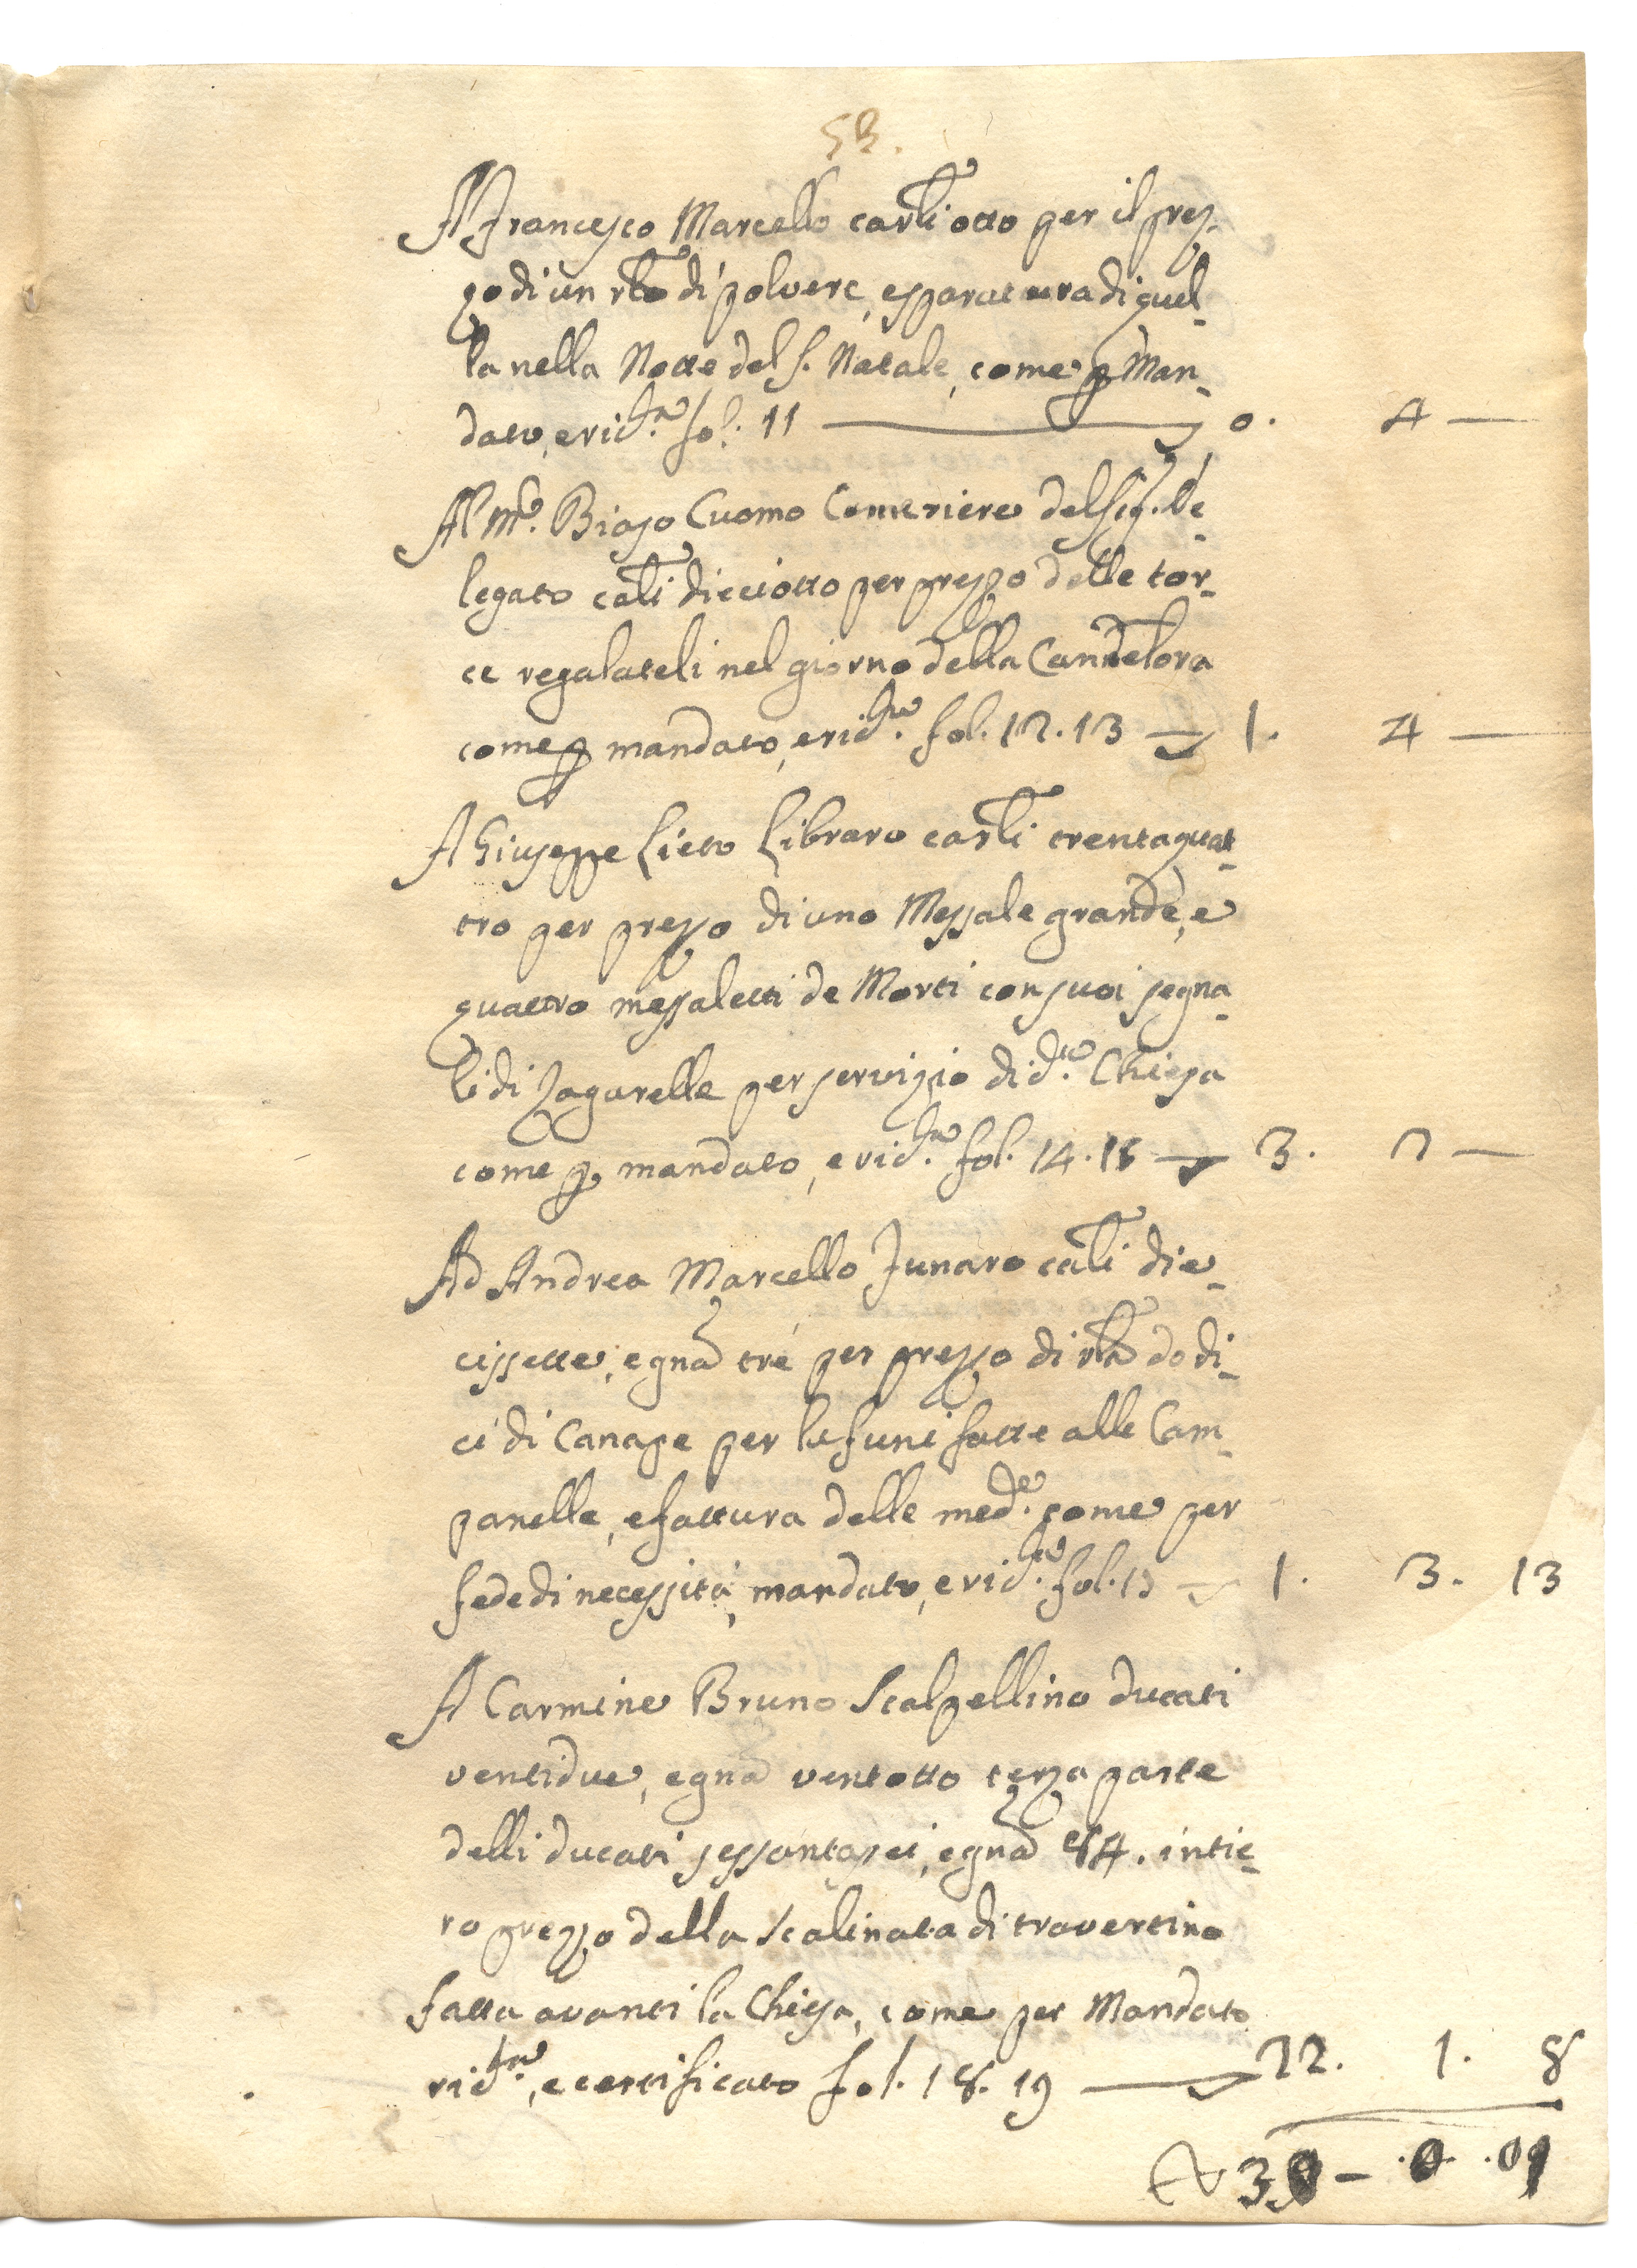 53.
A Francesco Marcello carli otto per il prez-
zo di un rlo di polvere, e sparatura di quel-
la nella Notte del S. Natale, come p Man-
dato, e ric.ta fol. 11 0. 4 —
Al m.o Biaso Cuomo Cameriere del Sig. De-
legato carli dieciotto per prezzo delle tor-
ce regalateli nel giorno della Candelora
come p mandato, e ric.ta fol. 12. 13 1. 4 —
A Giuseppe Lieto Libraro carli trentaquat-
tro per prezzo di uno Messale grande, e
quattro messaletti de Morti con suoi segna-
li di Zagarelle per servizio di d.ta Chiesa
come p mandato, e ric.ta fol. 14. 15 3. 2 —
Ad Andrea Marcello Funaro carli die-
cissette, e gna tre per prezzo di rla dodi-
ci di Canape per le funi fatte alle Cam-
panelle, e fattura delle med.e come per
fede di necessità, mandato, e ric.ta fol. 1. 3. 13
A Carmine Bruno Scalpellino ducati
ventidue, e gna ventotto terza parte
delli ducati sessantasei, e gna 84. intie-
ro prezzo della scalinata di travertino
fatta avanti la Chiesa, come per Mandato
ric.ta, e certificato fol. 18. 19 22. 1. 8